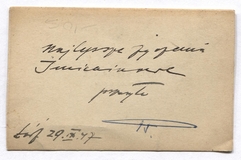 Najlepsze życzenia
Imieninowe
przesyła
Łódź 29.IX.47